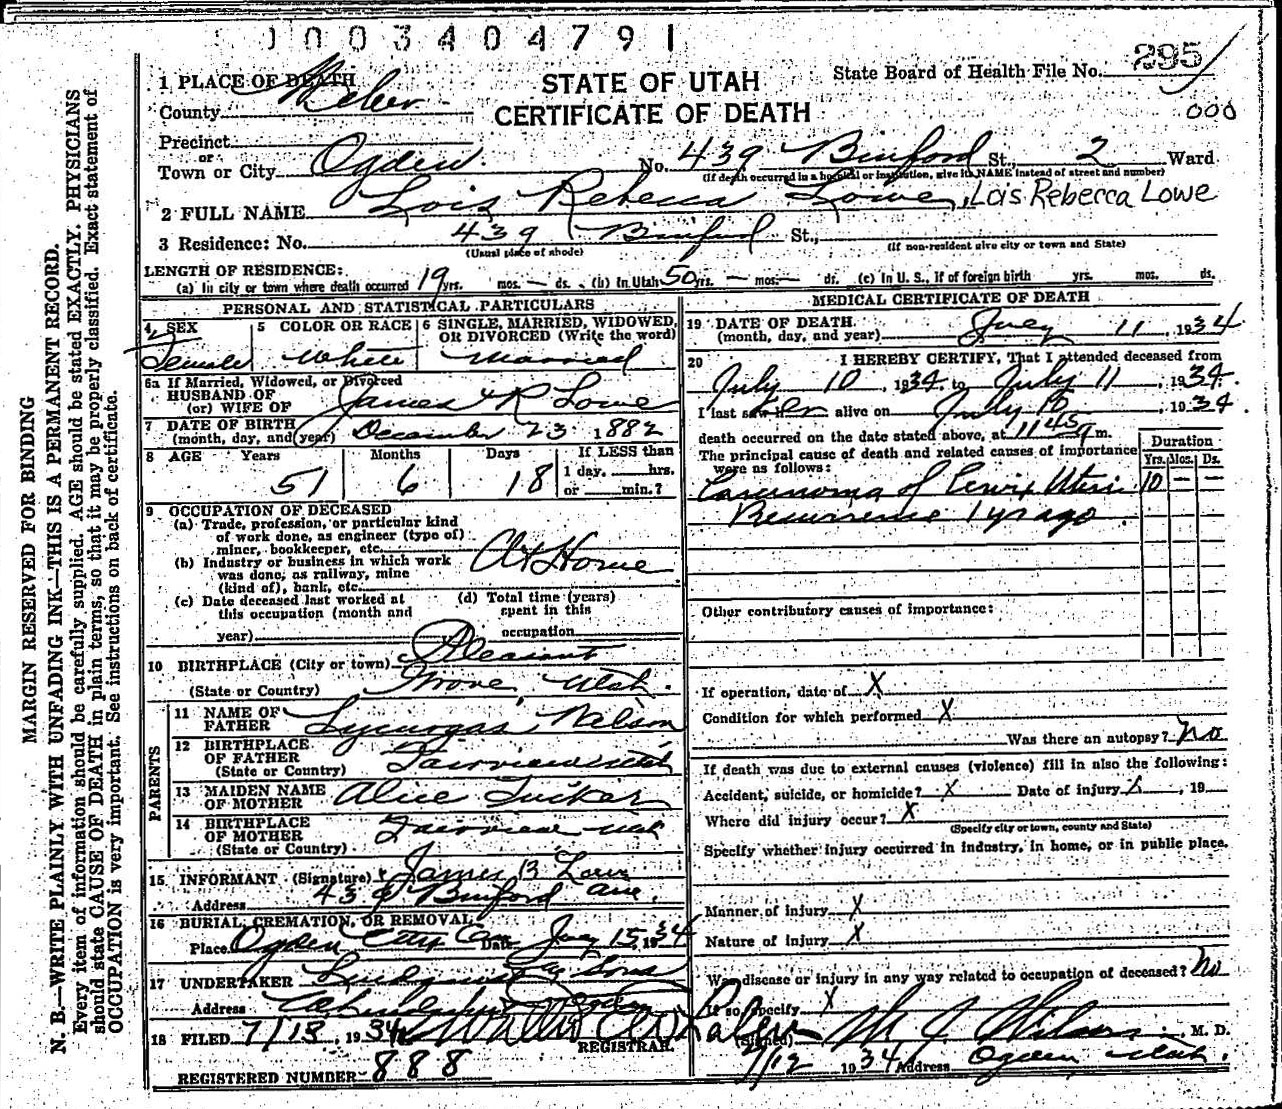 1003404791
295
000
STATE OF UTAH
CERTIFICATE OF DEATH
State Board of Health File No.
MARGIN RESERVED FOR BINDING
N. B.—WRITE PLAINLY WITH UNFADING INK—THIS IS A PERMANENT RECORD.
Every item of information should be carefully supplied. AGE should be stated EXACTLY. PHYSICIANS
should state CAUSE OF DEATH in plain terms, so that it may be properly classified. Exact statement of
OCCUPATION is very important. See instructions on back of certificate.
1 PLACE OF DEATH
County Weber
Precinct
or
Town or City Ogden No. 439 Binford St., 2 Ward
(If death occurred in a hospital or institution, give its NAME instead of street and number)
2 FULL NAME Lois Rebecca Lowe, Lois Rebecca Lowe
3 Residence: No. 439 Binford St.,
(Usual place of abode) (If non-resident give city or town and State)
LENGTH OF RESIDENCE:
(a) In city or town where death occurred 19 yrs. — mos. — ds. (b) In Utah 50 yrs. — mos. — ds. (c) In U. S., if of foreign birth yrs. mos. ds.
PERSONAL AND STATISTICAL PARTICULARS
4 SEX Female
5 COLOR OR RACE White
6 SINGLE, MARRIED, WIDOWED, OR DIVORCED (Write the word) Married
6a If Married, Widowed, or Divorced
HUSBAND OF
(or) WIFE OF James R Lowe
7 DATE OF BIRTH
(month, day, and year) December 23 1882
8 AGE Years Months Days If LESS than
51 6 18 1 day, hrs.
or min.?
9 OCCUPATION OF DECEASED
(a) Trade, profession, or particular kind
of work done, as engineer (type of)
miner, bookkeeper, etc. At Home
(b) Industry or business in which work
was done, as railway, mine
(kind of), bank, etc.
(c) Date deceased last worked at
this occupation (month and
year)
(d) Total time (years)
spent in this
occupation
10 BIRTHPLACE (City or town) Pleasant
(State or Country) Grove, Utah.
PARENTS
11 NAME OF
FATHER Lycurgas Wilson
12 BIRTHPLACE
OF FATHER
(State or Country) Fairview Utah
13 MAIDEN NAME
OF MOTHER Alice Tucker
14 BIRTHPLACE
OF MOTHER
(State or Country) Fairview Utah
15 INFORMANT (Signature) James R Lowe
Address 439 Binford Ave.
16 BURIAL, CREMATION, OR REMOVAL
Place Ogden City Cem Date July 15, 1934
17 UNDERTAKER Lindquist & Sons
Address Ogden
18 FILED 7/13, 1934
REGISTRAR.
REGISTERED NUMBER 888
MEDICAL CERTIFICATE OF DEATH
19 DATE OF DEATH
(month, day, and year) July 11, 1934
20 I HEREBY CERTIFY, That I attended deceased from
July 10, 1934 to July 11, 1934.
I last saw her alive on July 10, 1934.
death occurred on the date stated above, at 11 45 a m.
The principal cause of death and related causes of importance
were as follows:
Duration
Yrs. Mos. Ds.
Carcinoma of Cervix Uteri 10 — —
Recurrence 1 yr ago
Other contributory causes of importance:
If operation, date of X
Condition for which performed X
Was there an autopsy? No
If death was due to external causes (violence) fill in also the following:
Accident, suicide, or homicide? X Date of injury X, 19
Where did injury occur? X
(Specify city or town, county and State)
Specify whether injury occurred in industry, in home, or in public place.
Manner of injury X
Nature of injury X
Was disease or injury in any way related to occupation of deceased? No
If so, specify X
(Signed) Wilson, M. D.
7/12 1934 Address Ogden, Utah.